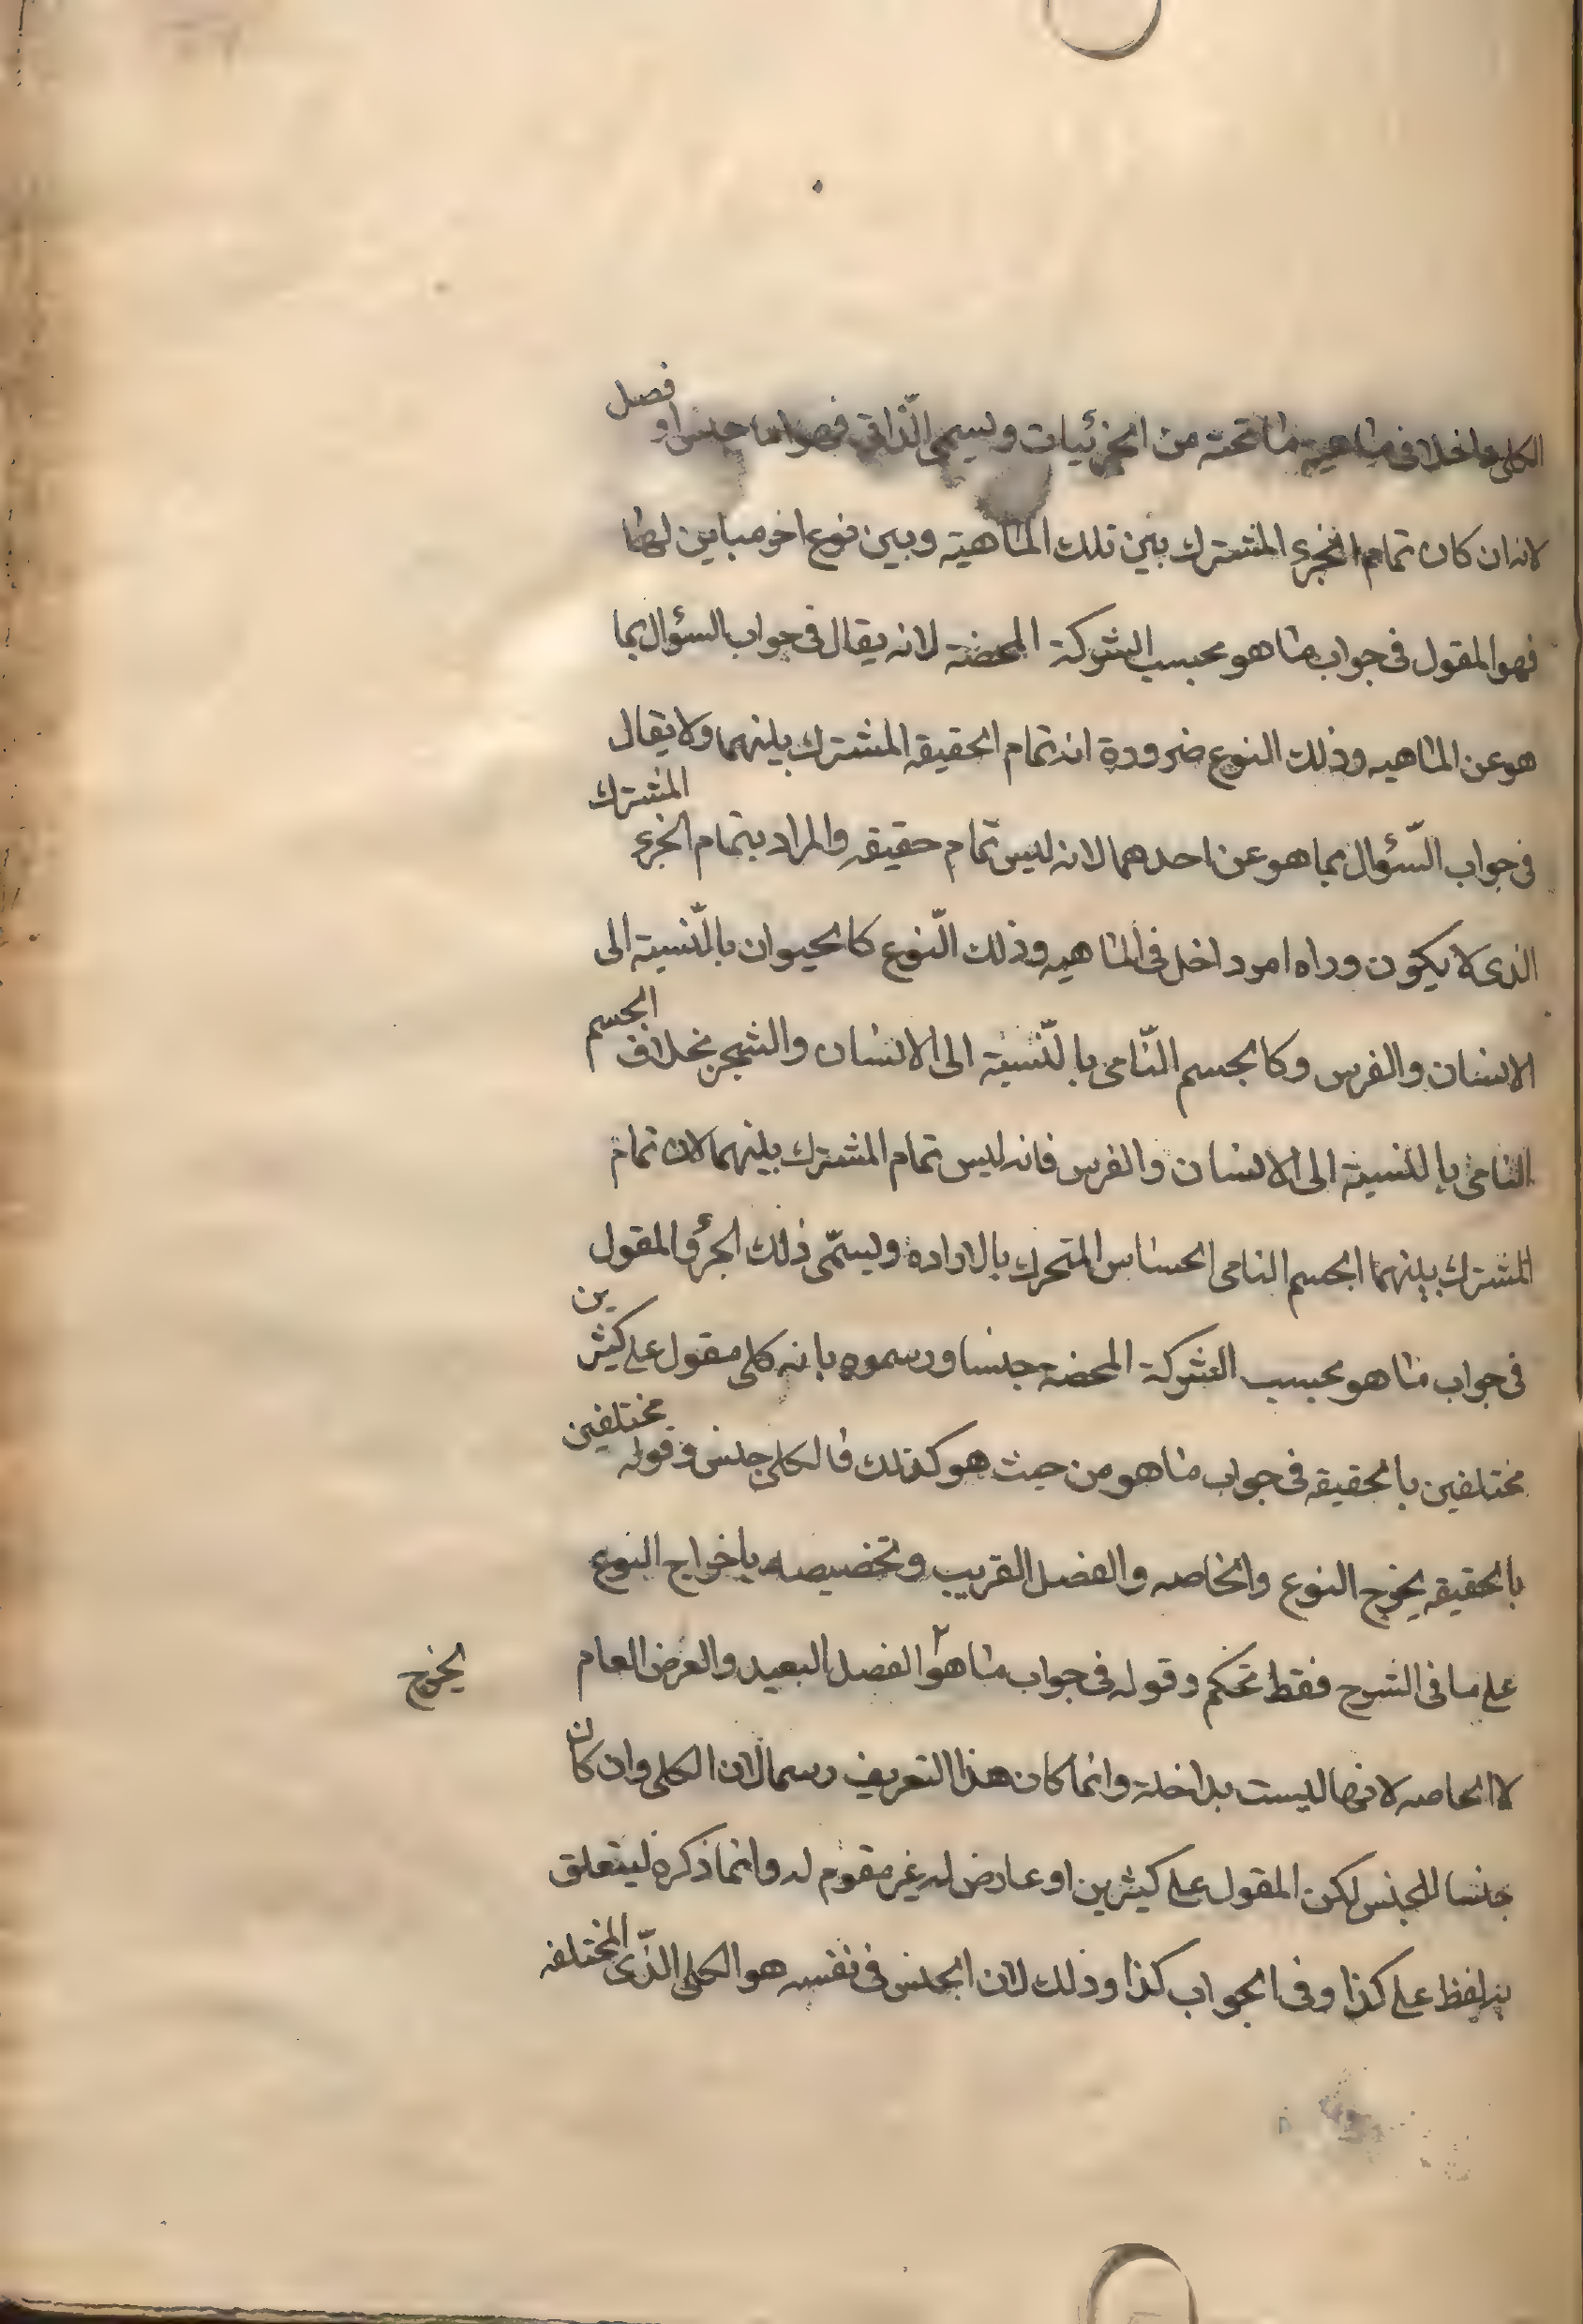 الكلى داخلا فى ماهية ما تحته من الجزئيات ويسمى الذّاتى فهو اما جنس او فصل
لانه ان كان تمام الجزء المشترك بين تلك الماهية وبين نوع اخر مباين لها
فهو المقول فى جواب ما هو بحسب الشركة المحضة لانه يقال فى جواب السؤال بما
هو عن الماهيه وذلك النوع ضرورة انه تمام الحقيقه المشترك بينهما ولا يقال
فى جواب السّؤال بما هو عن احدهما لانه ليس تمام حقيقه والمراد بتمام الجزء المشترك
الذى لا يكون وراه امر داخل فى الماهيه وذلك النّوع كالحيوان بالنّسبة الى
الانسان والفرس وكالجسم النّامى بالنّسبة الى الانسان والشجر بخلاف الجسم
النامى بالنسبة الى الانسان والفرس فانه ليس تمام المشترك بينهما لان تمام
المشترك بينهما الجسم النامى الحساس المتحرك بالاراده ويسمّى ذلك الجزؤ المقول
فى جواب ما هو بحسب الشركة المحضة جنسا ورسموه بانه كلى مقول على كثيرين
مختلفين بالحقيقه فى جواب ما هو من حيث هو كذلك فالكلى جنس وقوله مختلفين
بالحقيقه يخرج النوع والخاصه والفصل القريب وتخصيصه باخراج النوع
على ما فى الشرح فقط تحكم وقوله فى جواب ما هو ٢ الفصل البعيد والعرض العام
يخرج
لا الخاصه لانها ليست بداخلة وانما كان هذا التعريف رسما لان الكلى وان كان
جنسا للجنس لكن المقول على كثيرين او عارض له غير مقوم له وانما ذكره ليتعلق
به لفظ على كذا وفى الجواب كذا وذلك لان الجنس فى نفسه هو الكلى الذّى المختلفه